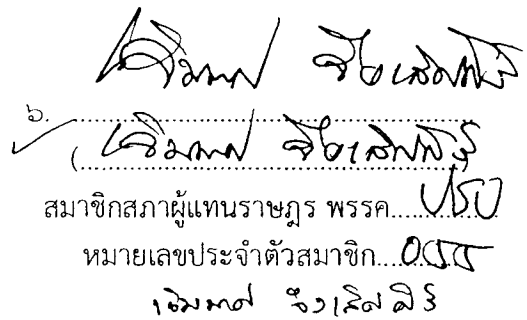 เจิมมาศ จึงเลิศศิริ
๖.
(เจิมมาศ จึงเลิศศิริ)
สมาชิกสภาผู้แทนราษฎร พรรค ปชป
หมายเลขประจำตัวสมาชิก
เจิมมาศ จึงเลิศศิริ